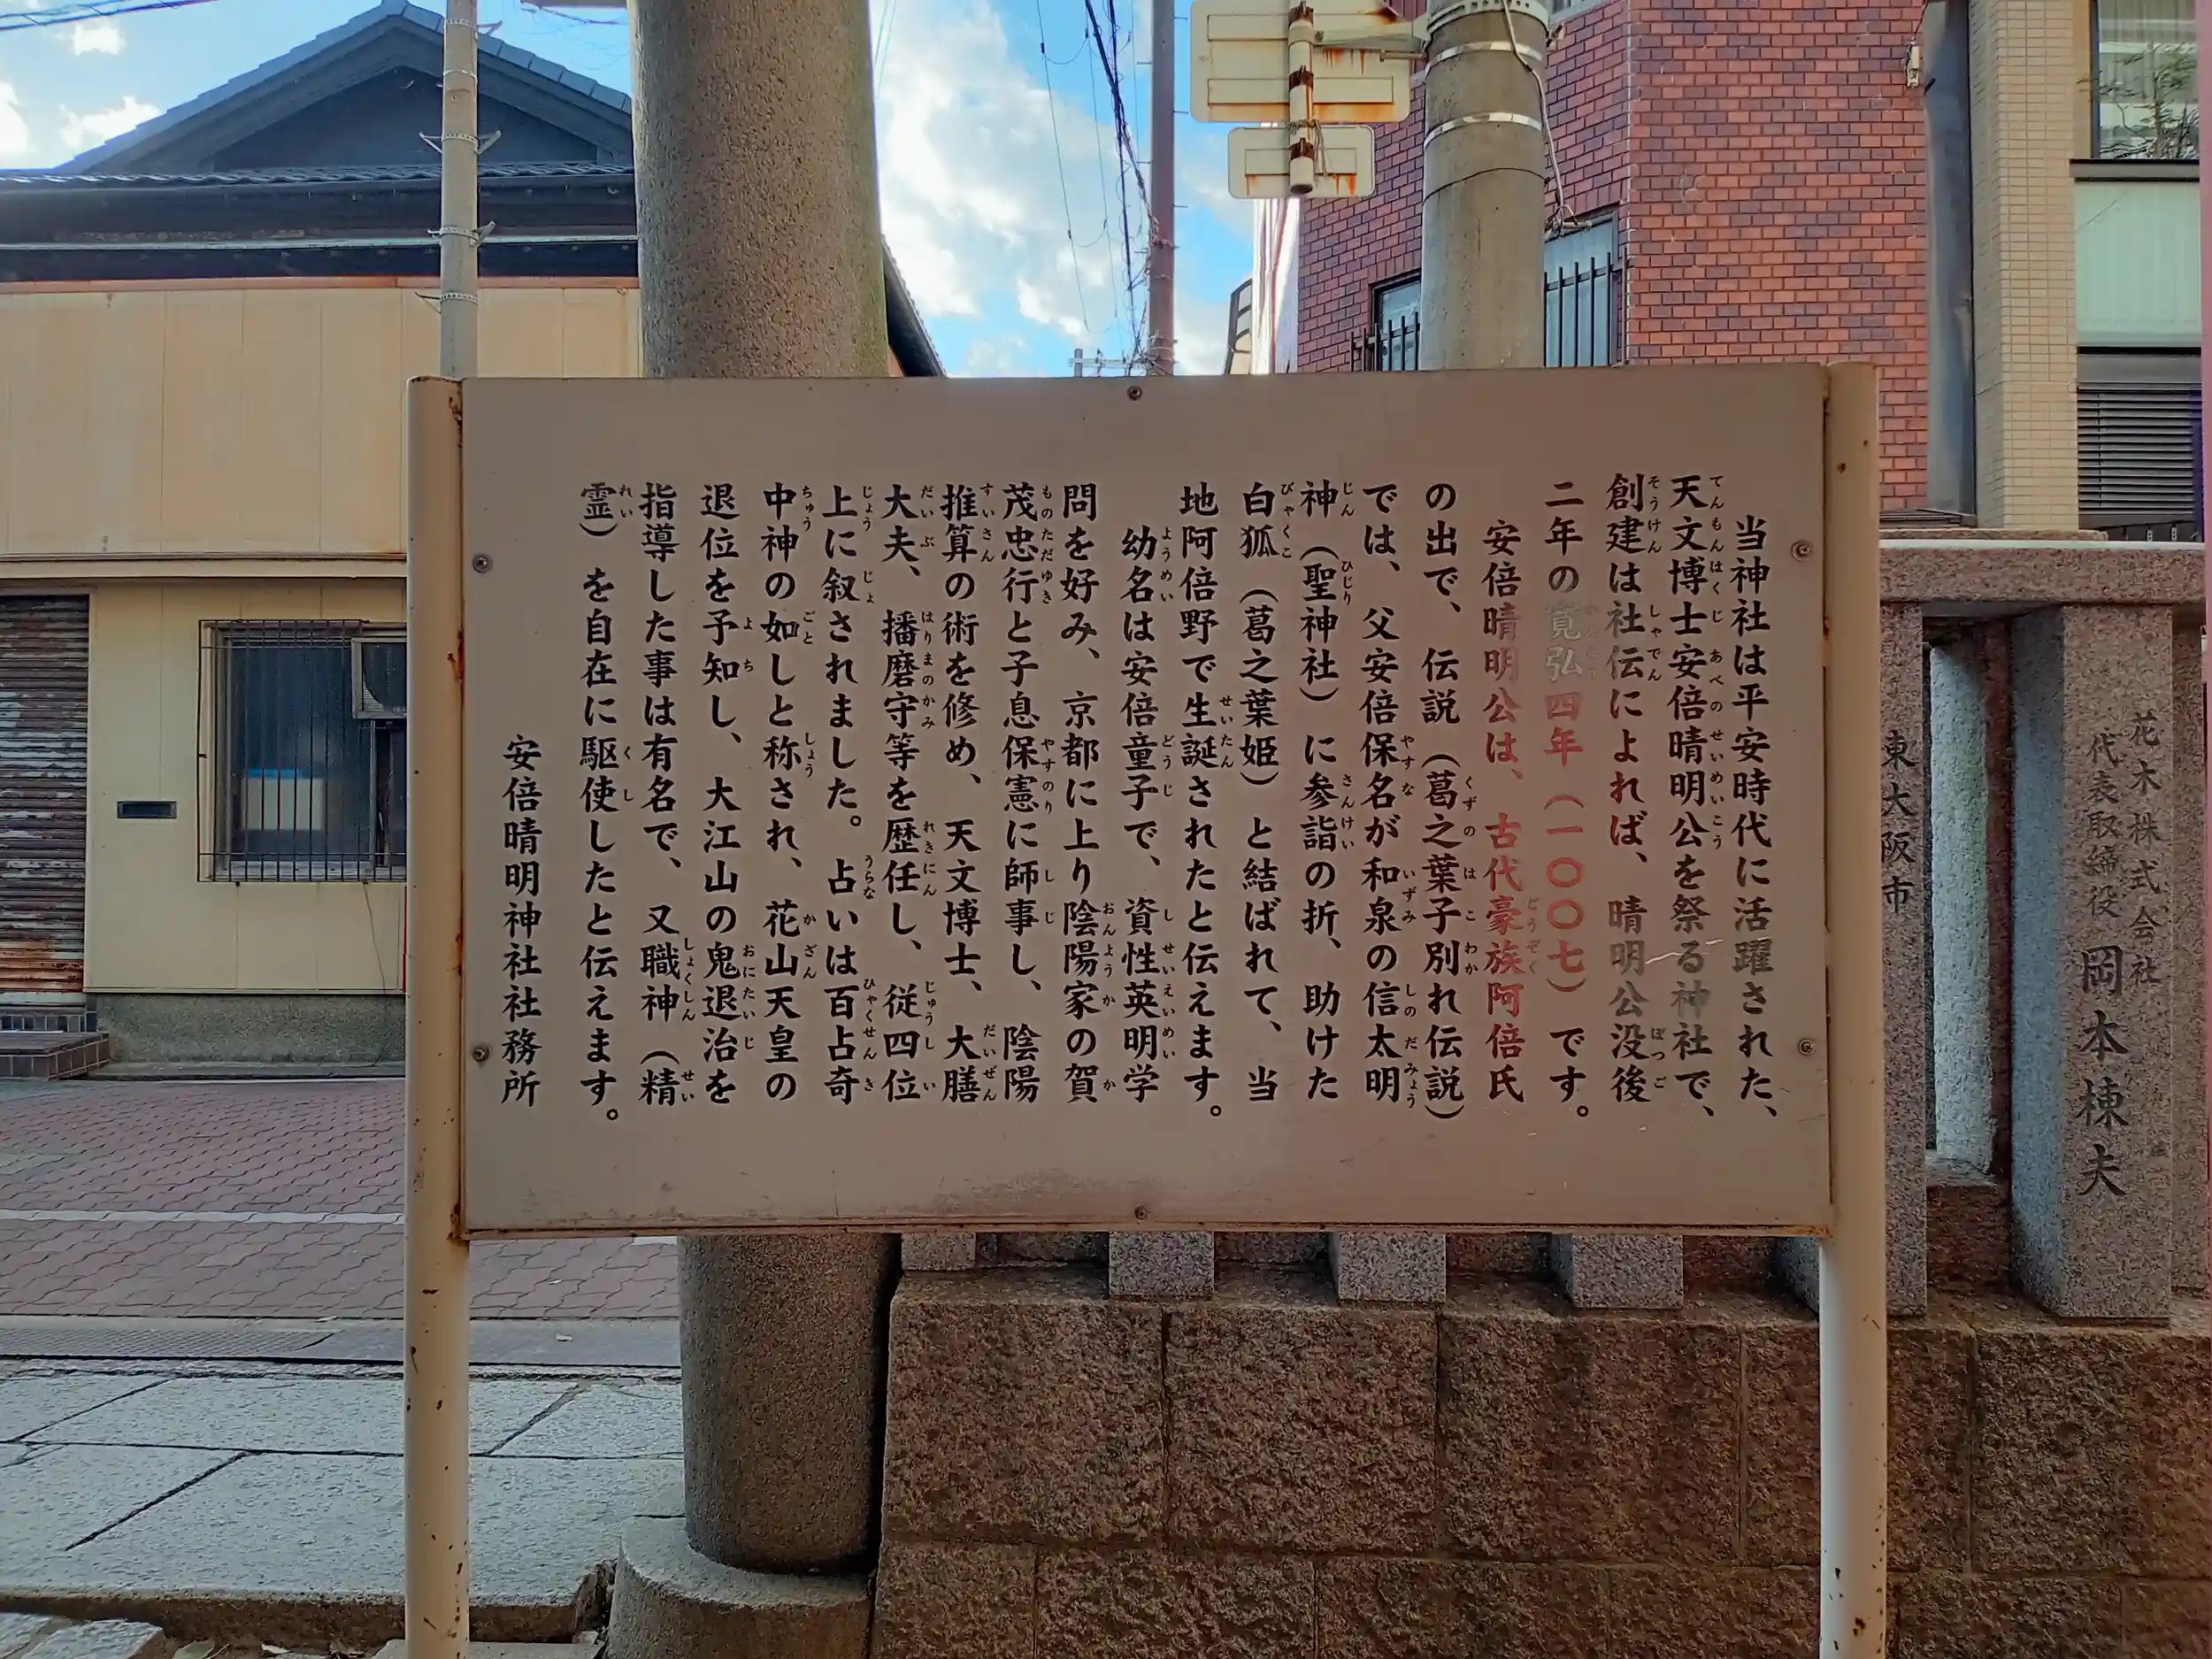 当神社は平安時代に活躍された、
天文博士安倍晴明公を祭る神社で、
創建は社伝によれば、晴明公没後
二年の寛弘四年（一〇〇七）です。
安倍晴明公は、古代豪族阿倍氏
の出で、伝説（葛之葉子別れ伝説）
では、父安倍保名が和泉の信太明
神（聖神社）に参詣の折、助けた
白狐（葛之葉姫）と結ばれて、当
地阿倍野で生誕されたと伝えます。
幼名は安倍童子で、資性英明学
問を好み、京都に上り陰陽家の賀
茂忠行と子息保憲に師事し、陰陽
推算の術を修め、天文博士、大膳
大夫、播磨守等を歴任し、従四位
上に叙されました。占いは百占奇
中神の如しと称され、花山天皇の
退位を予知し、大江山の鬼退治を
指導した事は有名で、又職神（精
霊）を自在に駆使したと伝えます。
安倍晴明神社社務所
花木株式会社
代表取締役 岡本棟夫
東大阪市